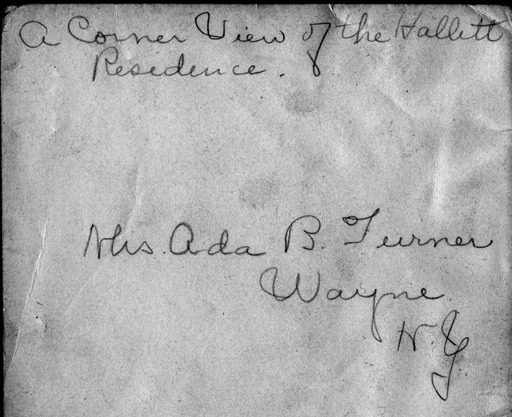 A Corner View of the Hallett
Residence.
Mrs. Ada B. Turner
Wayne
N.Y.